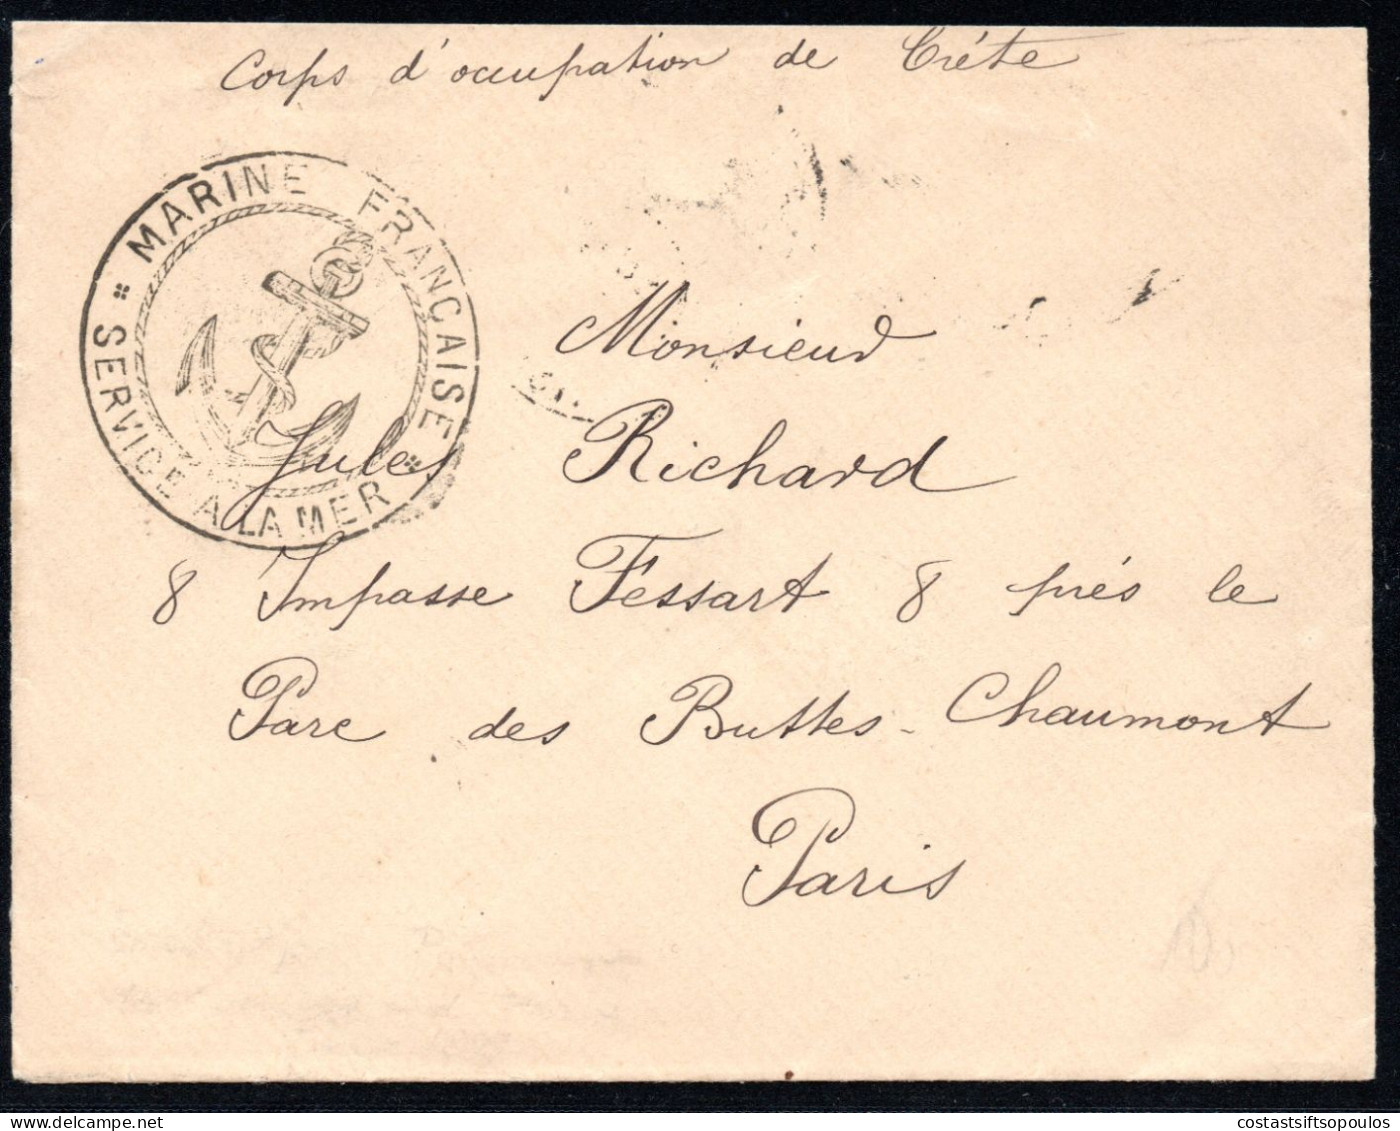 Corps d'occupation de Crète
MARINE FRANÇAISE
SERVICE A LA MER
Monsieur
Jules Richard
8 Impasse Fessart 8 près le
Parc des Buttes-Chaumont
Paris
costastsiftsopoulos